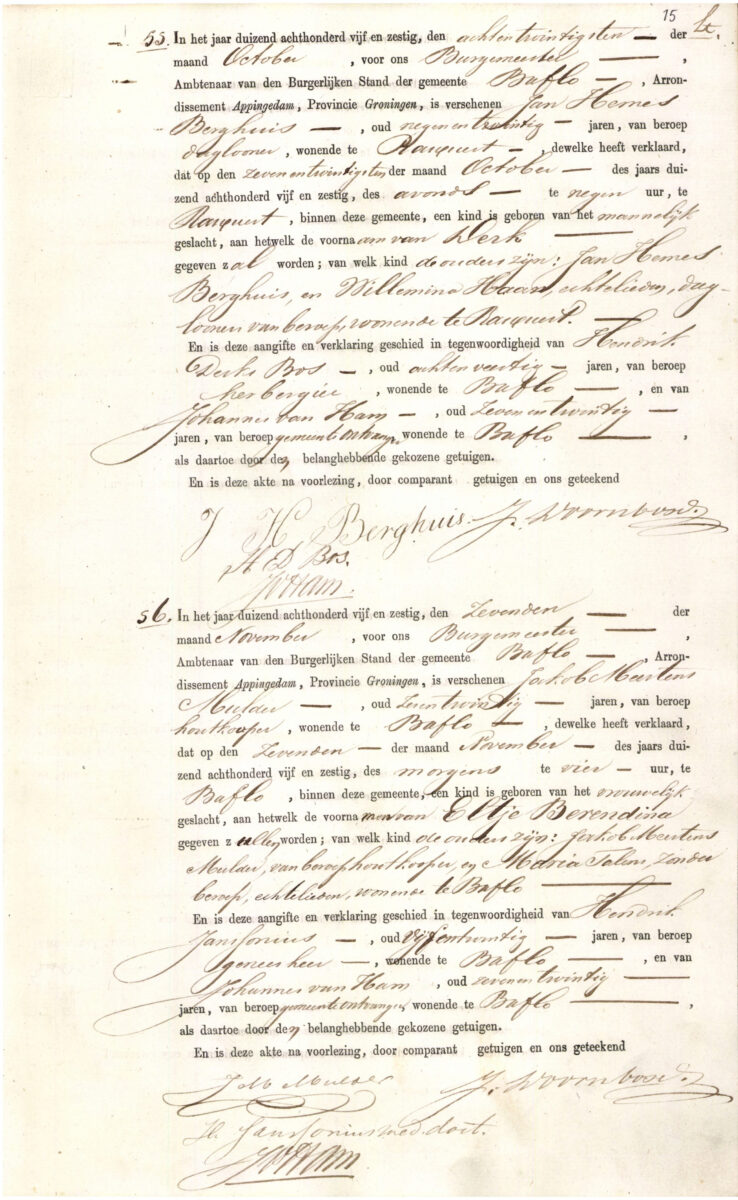 15
55. In het jaar duizend achthonderd vijf en zestig, den achtentwintigsten — der
maand October , voor ons Burgemeester — ,
Ambtenaar van den Burgerlijken Stand der gemeente Baflo — , Arron-
dissement Appingedam, Provincie Groningen, is verschenen Jan Hemes
Berghuis — , oud negenentwintig — jaren, van beroep
daglooner , wonende te Rasquert — , dewelke heeft verklaard,
dat op den zevenentwintigsten der maand October — des jaars dui-
zend achthonderd vijf en zestig, des avonds — te negen uur, te
Rasquert , binnen deze gemeente, een kind is geboren van het mannelijk
geslacht, aan hetwelk de voornaam van Derk —
gegeven zal worden; van welk kind de ouders zijn: Jan Hemes
Berghuis, en Willemina Haan, echtelieden, dag-
looners van beroep, wonende te Rasquert. —
En is deze aangifte en verklaring geschied in tegenwoordigheid van Hendrik
Derks Bos — , oud achtenveertig — jaren, van beroep
herbergier , wonende te Baflo — , en van
Johannes van Ham — , oud zevenentwintig —
jaren, van beroep gemeente ontvanger, wonende te Baflo — ,
als daartoe door den belanghebbende gekozene getuigen.
En is deze akte na voorlezing, door comparant getuigen en ons geteekend
J H Berghuis. J. Woornbosd.
H D Bos.
JvHam.
56. In het jaar duizend achthonderd vijf en zestig, den zevenden — der
maand November , voor ons Burgemeester — ,
Ambtenaar van den Burgerlijken Stand der gemeente Baflo — , Arron-
dissement Appingedam, Provincie Groningen, is verschenen Jakob Meertens
Mulder — , oud zesentwintig — jaren, van beroep
houtkooper , wonende te Baflo — , dewelke heeft verklaard,
dat op den zevenden — der maand November — des jaars dui-
zend achthonderd vijf en zestig, des morgens te vier — uur, te
Baflo , binnen deze gemeente, een kind is geboren van het vrouwelijk
geslacht, aan hetwelk de voornamen van Eltje Berendina
gegeven zullen worden; van welk kind de ouders zijn: Jakob Meertens
Mulder, van beroep houtkooper, en Maria Talens, zonder
beroep, echtelieden, wonende te Baflo —
En is deze aangifte en verklaring geschied in tegenwoordigheid van Hendrik
Janssonius — , oud vijfentwintig — jaren, van beroep
geneesheer — , wonende te Baflo — , en van
Johannes van Ham , oud zevenentwintig —
jaren, van beroep gemeente ontvanger, wonende te Baflo — ,
als daartoe door den belanghebbende gekozene getuigen.
En is deze akte na voorlezing, door comparant getuigen en ons geteekend
J M Mulder J. Woornbosd.
H. Janssonius med. doct.
JvHam